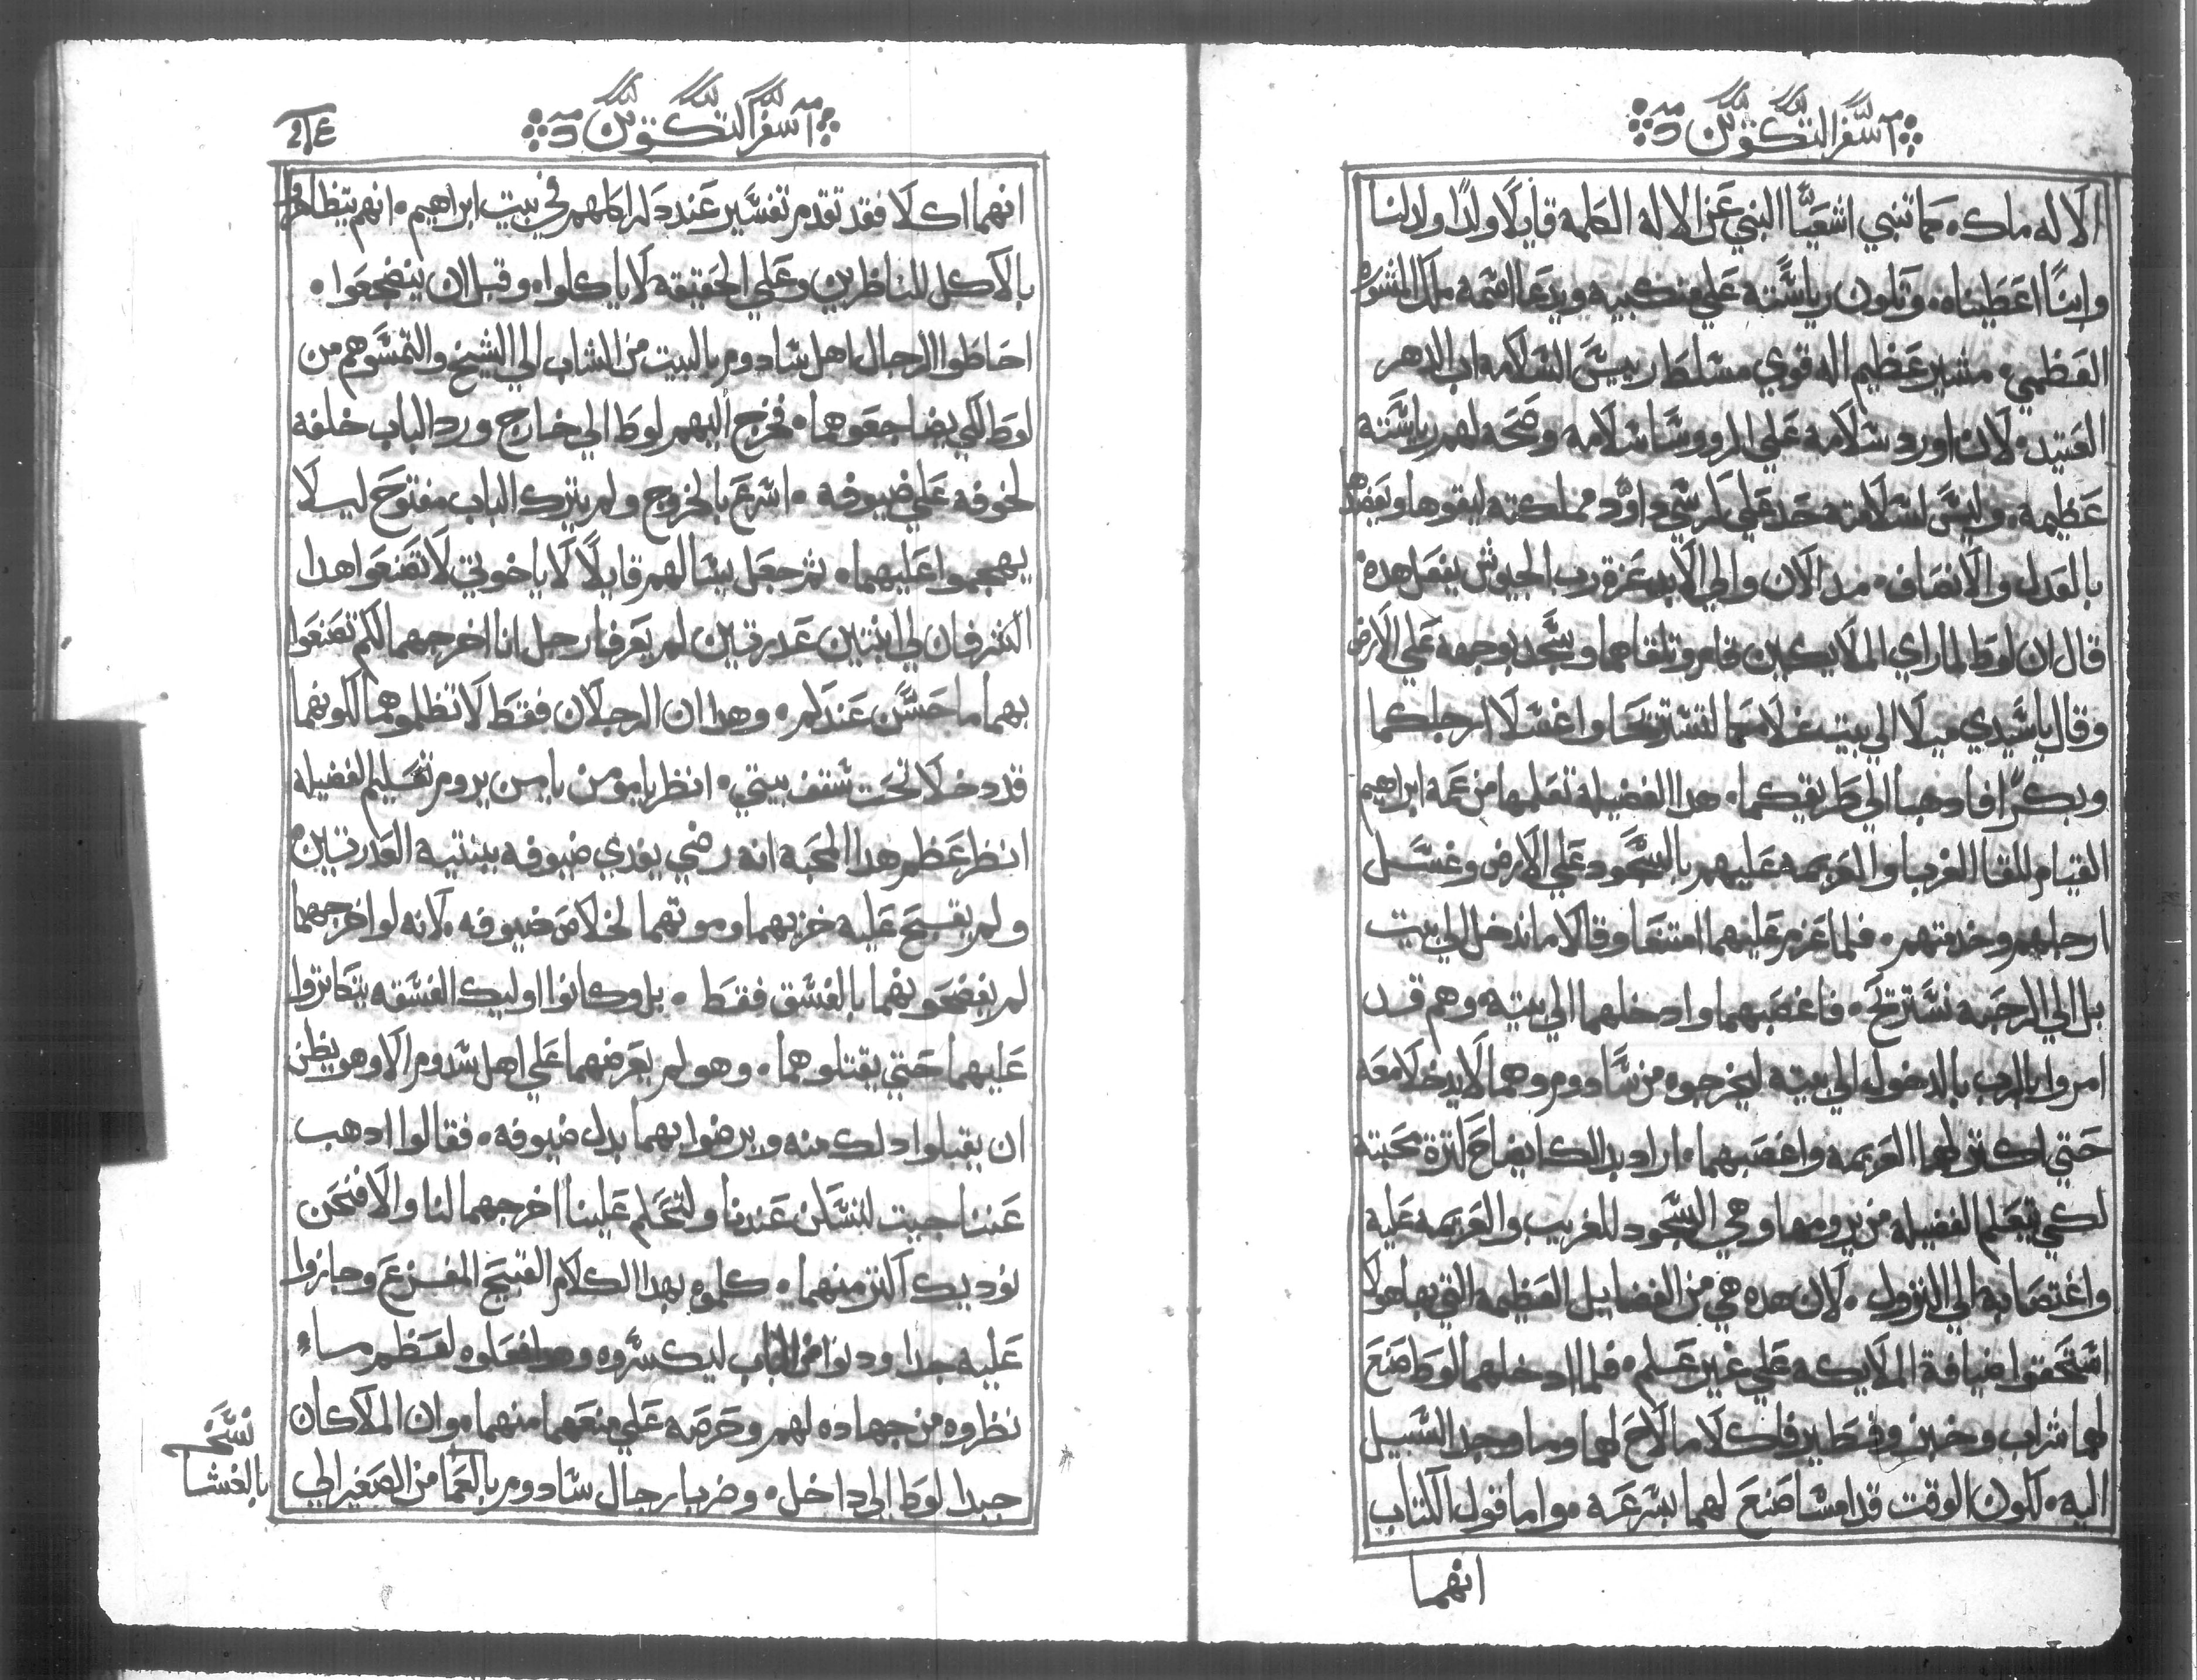 سفر التكوين
الاله ملك. كما تنبي اشعيا النبي عن الاله الكلمة قايلا ولدا ولد لنا
وابنا اعطيناه. وتكون رياسته علي منكبيه ويدعا اسمه ملاك المشوره
العظمي. مشير عظيم اله قوي مسلط ريس السلامه اب الدهر
العتيد. لان اورد سلامة علي الروسا سلامه وصحه لهم رياسته
عظيمه. وليس لسلامته حد علي كرسي داوود ومملكته ليقوها ويعضدها
بالعدل والانصاف. مند الان والي الابد عزة رب الجيوش يفعل هده
قال ان لوط لما راي الملايكين قام وتلقاهما وسجد بوجهه علي الارض
وقال ياسيدي ميلا الي بيت غلامكما لتستريحا واغسلا ارجلكما
وبكرا فادهبا الي طريقكما. هدا الفضيلة تعلمها من عمه ابراهيم
القيام للقا الغربا والعزيمه عليهم بالسجود علي الارض وغسل
ارجلهم وخدمتهم. فلما عزم عليهما امتنعا وقالا ما ندخل الي بيت
بل الي الرحبه نستريح. فاغصبهما وادخلهما الي بيته. وهم قد
امروا بالرب بالدخول الي بيته ليخرجوه من سادوم وهما لا يدخلا معه
حتي اكتر لهما العزيمه واغصبهما. اراد بدالك ايضاح كترة محبته
لكي يتعلم الفضيله من يرومها وهي السجود للغريب والعزيمه عليه
واغتصابه الي النزول. لان هده هي من الفضايل العظيمه التي بها هولا
استحقوا ضيافة الملايكه علي غير علم. فلما ادخلهما لوط صنع
لهما شراب وخبز وفطير فاكلا مالاح لهما وما وجد السبيل
اليه. لكون الوقت قد امسا صنع لهما بسرعه. واما قول الكتاب
انهما
سفر التكوين
انهما اكلا فقد تقدم تفسير عند دكر اكلهم في بيت ابراهيم. انهم يتظاهروا
بالاكل للناظرين وعلي الحقيقه لا ياكلوا. وقبل ان ينضجعوا.
احاطوا الرجال اهل سادوم بالبيت من الشاب الي الشيخ والتمسوهم من
لوط لكي يضاجعوهما. فخرج اليهم لوط الي خارج ورد الباب خلفه
لخوفه علي ضيوفه. اسرع بالخروج ولم يترك الباب مفتوح ليلا
يهجموا عليهما. تم جعل يسالهم قايلا لا ياخوتي لا تصنعوا هدا
الشر فان لي ابنتين عدرتين لم يعرفا رجل انا اخرجهما لكم تصنعوا
بهما ما حسن عندكم. وهدان الرجلان فقط لا تظلموهما لكونهما
قد دخلا تحت سقف بيتي. انظر يامومن يامن يروم تعليم الفضيله
انظر عظم هدا المحبه انه رضي يفدي ضيوفه ببنتيه العدرتين
ولم يقبح عليه خزيهما وموتهما لخلاص ضيوفه. لانه لو اخرجهما
لم يفضحونهما بالفسق فقط. بل وكانوا اوليك الفسقه يتكاتروا
عليهما حتي يقتلوهما. وهو لم يعرضهما علي اهل سدوم الا وهو يظن
ان يقبلوا دلك منه ويرضوا بهما بدل ضيوفه. فقالوا ادهب
عننا جيت لتسكن عندنا ولتحكم علينا اخرجهما لنا والا فنحن
نوديك اكتر منهما. كلموه بهدا الكلام القبيح المفزع وجازوا
عليه جدا ودنوا من الباب ليكسروه وهدا فعلوه لعظم ساء
نظروه من جهاده لهم وحرصه علي منعهما منهما. وان الملاكان
جبدا لوط الي داخل. وضربا رجال سادوم بالعما من الصغير الي
نسخه
بالغشا